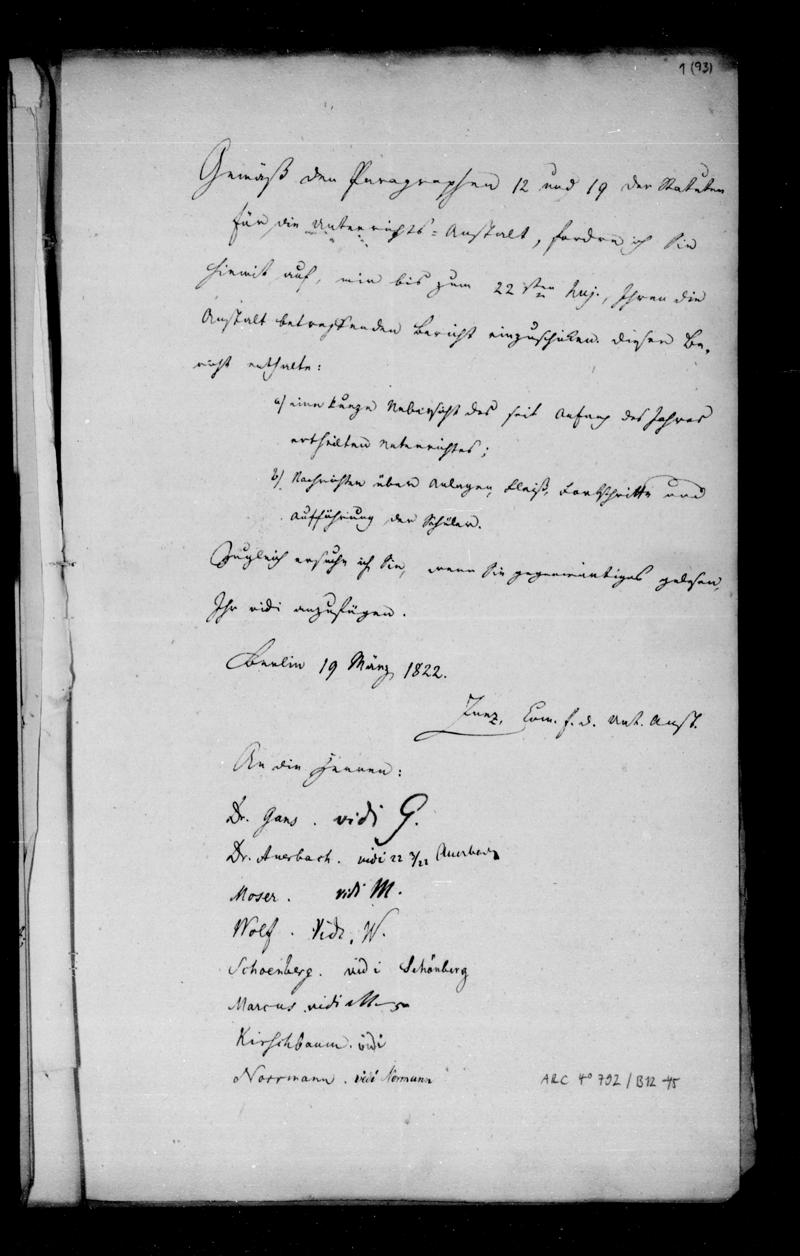 1 (93)
Gemäß den Paragraphen 12 und 19 der Statuten
für die Unterrichts-Anstalt, fordre ich Sie
hiemit auf, mir bis zum 22sten huj., Ihren die
Anstalt betreffenden Bericht einzuschicken. Dieser Be-
richt enthalte:
a) eine kurze Uebersicht des seit Anfang des Jahres
ertheilten Unterrichtes;
b) Nachrichten über Anlagen, Fleiß, Fortschritte und
Aufführung der Schüler.
Zugleich ersuche ich Sie, wenn Sie gegenwärtiges gelesen,
Ihr vidi anzufügen.
Berlin 19 März 1822.
Zunz, Com. f. d. Unt. Anst.
An die Herren:
Dr. Gans. vidi G.
Dr. Auerbach. vidi 22 3/22 Auerbach
Moser. vidi M.
Wolf. Vidi. W.
Schoenberg. vidi Schönberg
Marcus vidi M
Kirschbaum. vidi
Normann. vidi Normann
ARC 4° 792 / B12 - 45